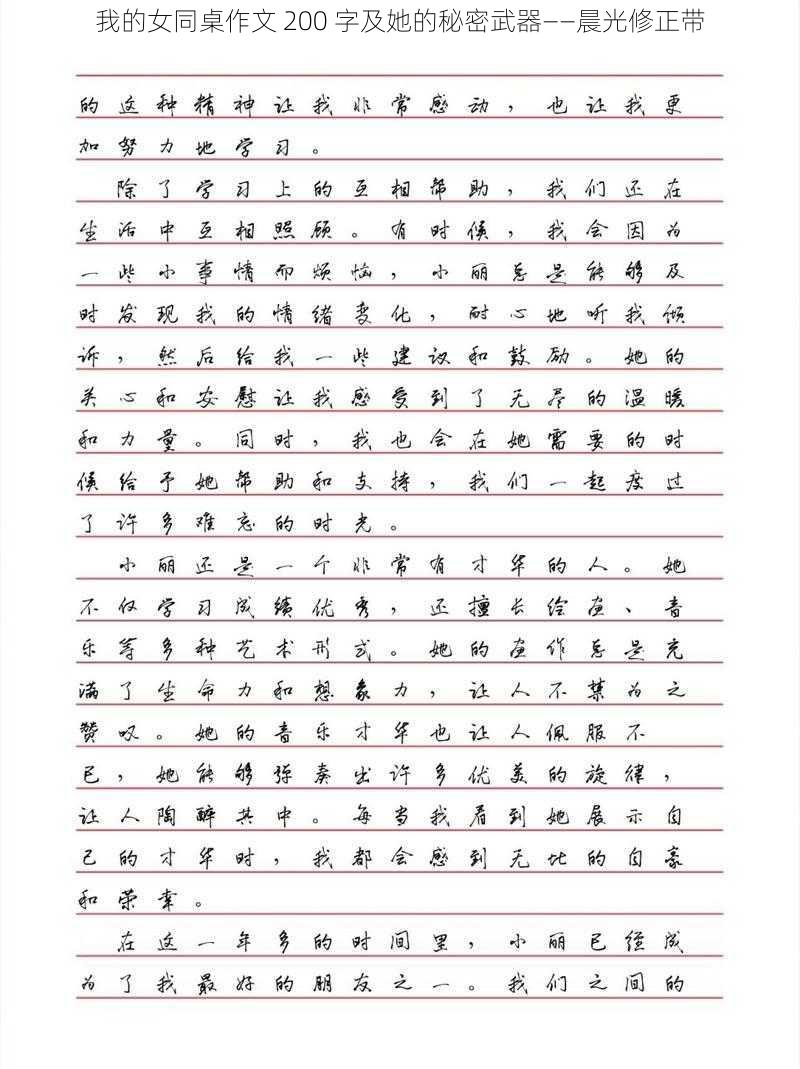 我的女同桌作文 200 字及她的秘密武器——晨光修正带
的这种精神让我非常感动，也让我更
加努力地学习。
除了学习上的互相帮助，我们还在
生活中互相照顾。有时候，我会因为
一些小事情而烦恼，小丽总是能够及
时发现我的情绪变化，耐心地听我倾
诉，然后给我一些建议和鼓励。她的
关心和安慰让我感受到了无尽的温暖
和力量。同时，我也会在她需要的时
候给予她帮助和支持，我们一起度过
了许多难忘的时光。
小丽还是一个非常有才华的人。她
不仅学习成绩优秀，还擅长绘画、音
乐等多种艺术形式。她的画作总是充
满了生命力和想象力，让人不禁为之
赞叹。她的音乐才华也让人佩服不
已，她能够弹奏出许多优美的旋律，
让人陶醉其中。每当我看到她展示自
己的才华时，我都会感到无比的自豪
和荣幸。
在这一年多的时间里，小丽已经成
为了我最好的朋友之一。我们之间的